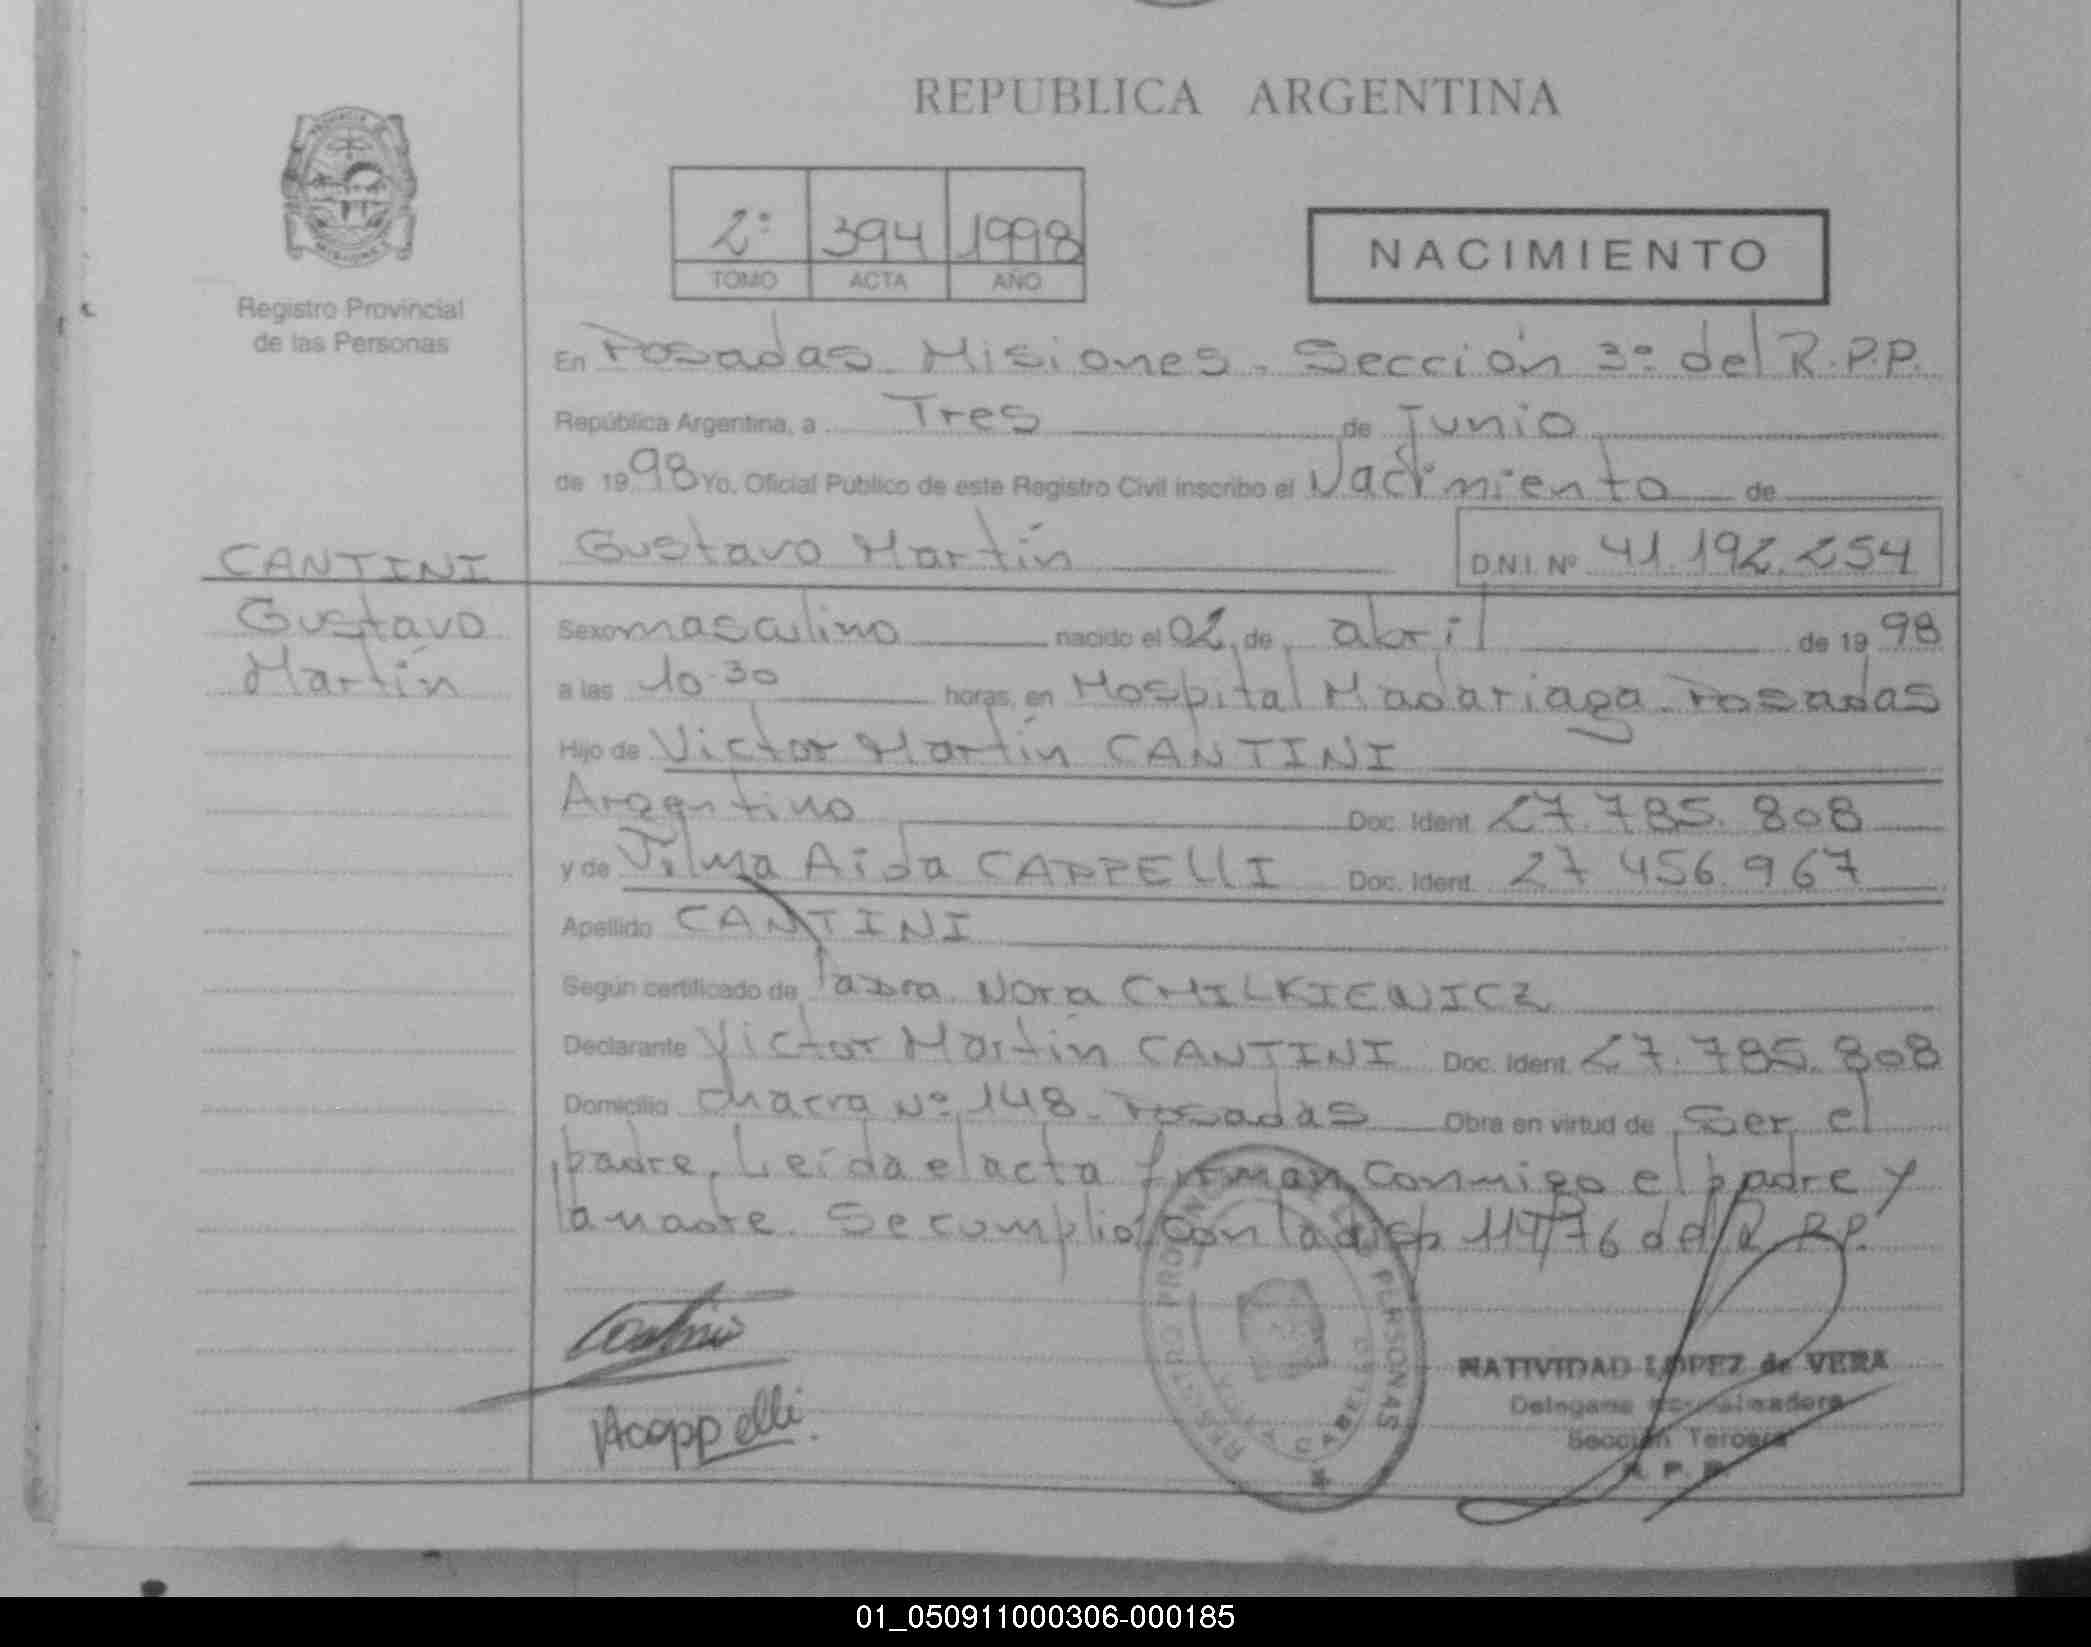 REPUBLICA ARGENTINA
2º 394 1998
TOMO ACTA AÑO
NACIMIENTO
Registro Provincial
de las Personas
En Posadas Misiones. Sección 3º del R.P.P.
República Argentina, a Tres de Junio
de 1998 Yo, Oficial Público de este Registro Civil inscribo el Nacimiento de
Gustavo Martín D.N.I. Nº 41.192.254
CANTINI
Gustavo
Martín
Sexo masculino nacido el 02 de abril de 1998
a las 10.30 horas, en Hospital Madariaga. Posadas
Hijo de Victor Martín CANTINI
Argentino Doc. Ident. 27.785.808
y de Vilma Aida CAPPELLI Doc. Ident. 27 456.967
Apellido CANTINI
Según certificado de Nora CHILKIEWICZ
Declarante Victor Martín CANTINI Doc. Ident. 27.785.808
Domicilio Chacra Nº 148. Posadas Obra en virtud de ser el
padre. Leída el acta firman conmigo el padre y
la madre. Se cumplió con la disp 114/76 del R.P.P.
Cantini
VAcappelli.
REGISTRO PROVINCIAL DE LAS PERSONAS
NATIVIDAD LOPEZ de VERA
Delegada
Sección Tercera
R. P. P.
01_050911000306-000185